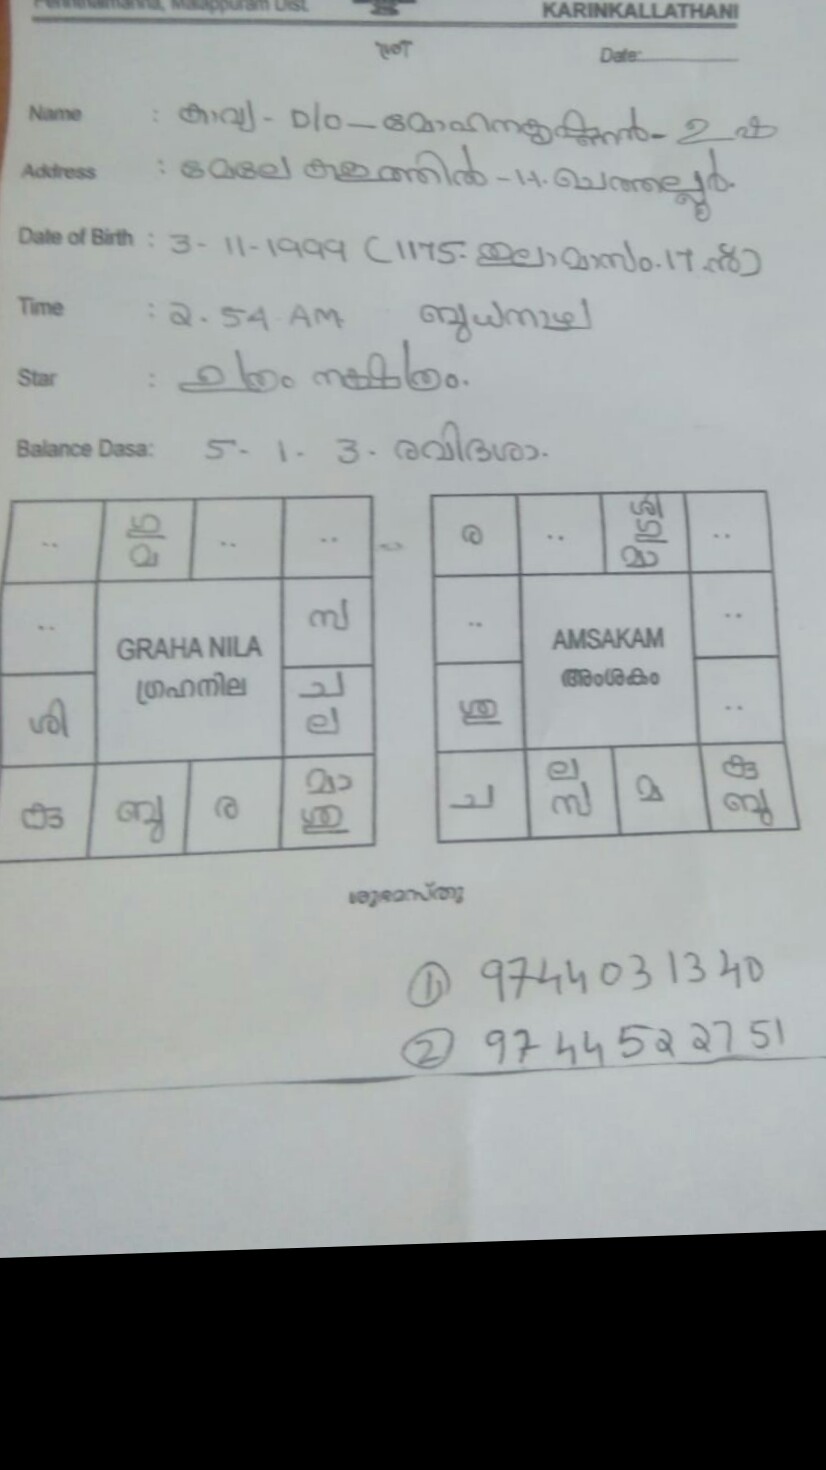 Perinthalmanna, Malappuram Dist. KARINKALLATHANI
Date:
Name : കാവ്യ - D/O - മോഹനകൃഷ്ണൻ -
Address : മേലേ കളത്തിൽ - H. ചെത്തല്ലൂർ.
Date of Birth : 3 - 11 - 1999 (1175 തുലാമാസം. 17.ന്)
Time : 2.54 AM ബുധനാഴ്ച
Star : ഉത്രം നക്ഷത്രം.
Balance Dasa: 5 - 1. 3 - രവിദശാ.
.. ഗു മ .. .. ര .. ..
.. സ .. ..
GRAHA NILA AMSAKAM
ഗ്രഹനില അംശകം
ശി ച ല ശു ..
കു ബു ര മാ ശു ച ല സ മ കു ബു
ശുഭമസ്തു
1) 9744031340
2) 9744522751